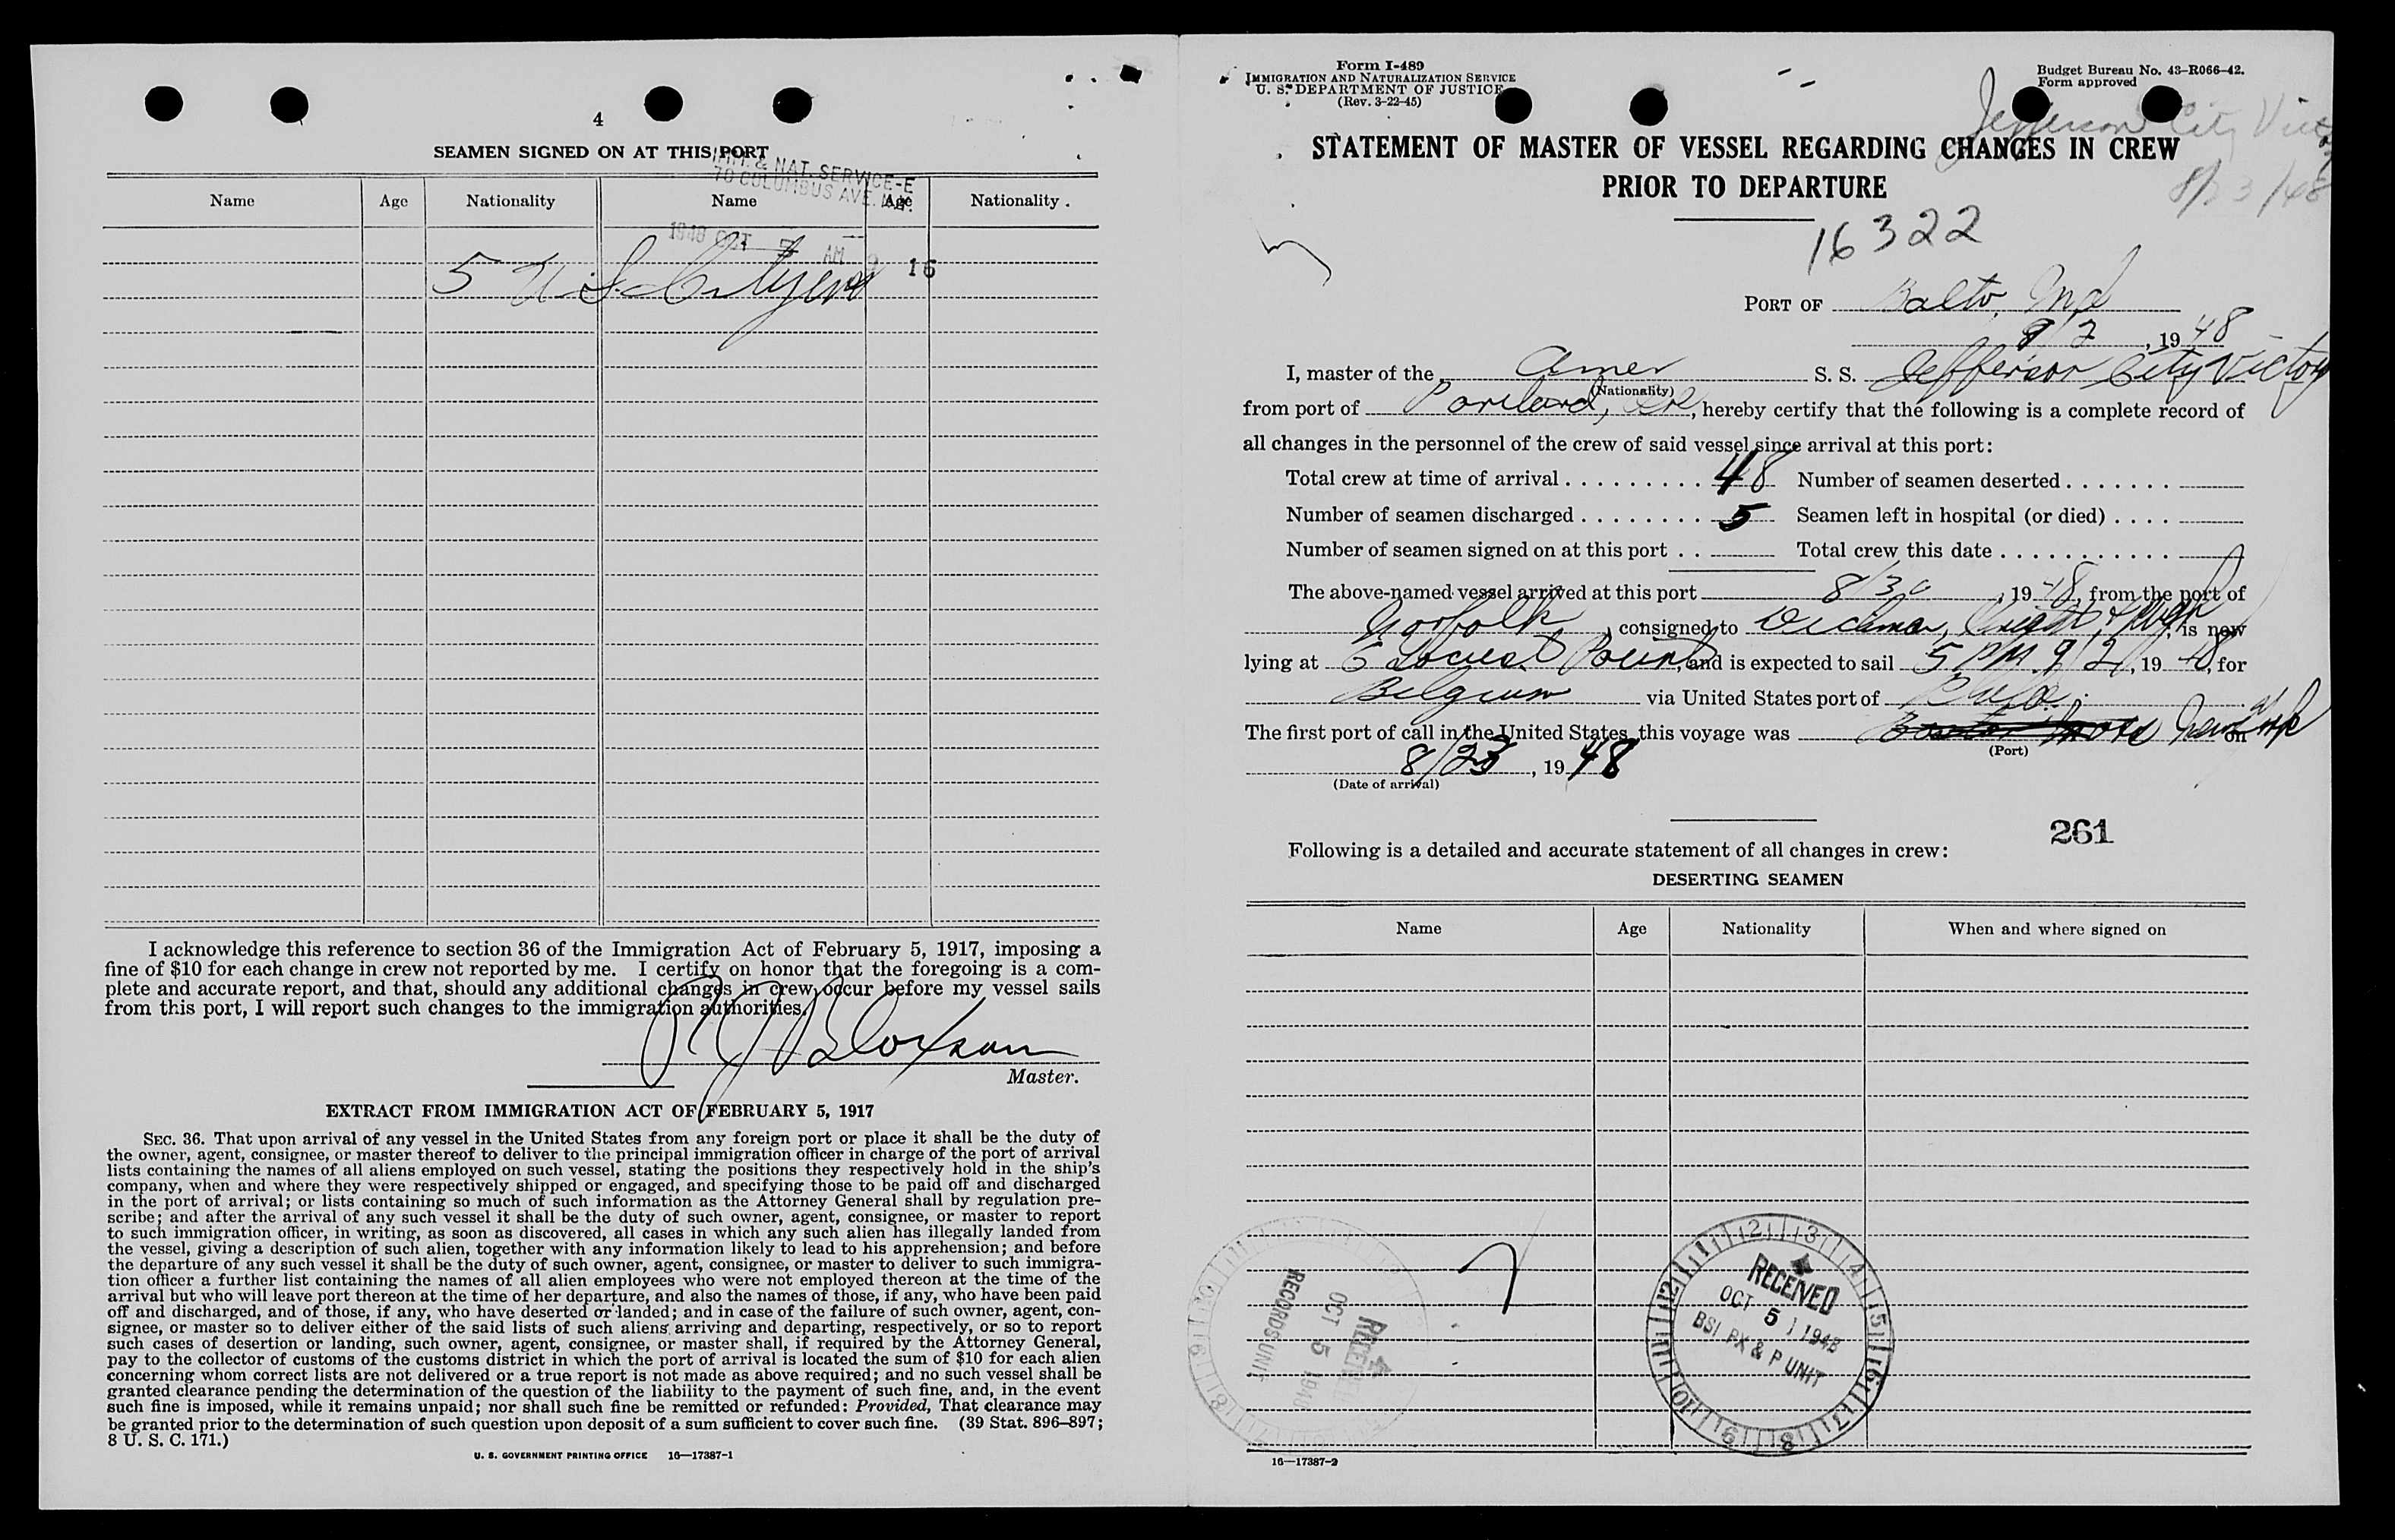 4
SEAMEN SIGNED ON AT THIS PORT
IMM. & NAT. SERVICE-E
70 COLUMBUS AVE. N.Y.
Name Age Nationality Name Age Nationality.
1948 OCT 5 AM 9 16
5 U.S. Citizens
I acknowledge this reference to section 36 of the Immigration Act of February 5, 1917, imposing a
fine of $10 for each change in crew not reported by me. I certify on honor that the foregoing is a com-
plete and accurate report, and that, should any additional changes in crew occur before my vessel sails
from this port, I will report such changes to the immigration authorities.
Bloxsom
Master.
EXTRACT FROM IMMIGRATION ACT OF FEBRUARY 5, 1917
SEC. 36. That upon arrival of any vessel in the United States from any foreign port or place it shall be the duty of
the owner, agent, consignee, or master thereof to deliver to the principal immigration officer in charge of the port of arrival
lists containing the names of all aliens employed on such vessel, stating the positions they respectively hold in the ship's
company, when and where they were respectively shipped or engaged, and specifying those to be paid off and discharged
in the port of arrival; or lists containing so much of such information as the Attorney General shall by regulation pre-
scribe; and after the arrival of any such vessel it shall be the duty of such owner, agent, consignee, or master to report
to such immigration officer, in writing, as soon as discovered, all cases in which any such alien has illegally landed from
the vessel, giving a description of such alien, together with any information likely to lead to his apprehension; and before
the departure of any such vessel it shall be the duty of such owner, agent, consignee, or master to deliver to such immigra-
tion officer a further list containing the names of all alien employees who were not employed thereon at the time of the
arrival but who will leave port thereon at the time of her departure, and also the names of those, if any, who have been paid
off and discharged, and of those, if any, who have deserted or landed; and in case of the failure of such owner, agent, con-
signee, or master so to deliver either of the said lists of such aliens arriving and departing, respectively, or so to report
such cases of desertion or landing, such owner, agent, consignee, or master shall, if required by the Attorney General,
pay to the collector of customs of the customs district in which the port of arrival is located the sum of $10 for each alien
concerning whom correct lists are not delivered or a true report is not made as above required; and no such vessel shall be
granted clearance pending the determination of the question of the liability to the payment of such fine, and, in the event
such fine is imposed, while it remains unpaid; nor shall such fine be remitted or refunded: Provided, That clearance may
be granted prior to the determination of such question upon deposit of a sum sufficient to cover such fine. (39 Stat. 896–897;
8 U. S. C. 171.)
U. S. GOVERNMENT PRINTING OFFICE 16—17387-1
Form I-489
IMMIGRATION AND NATURALIZATION SERVICE
U. S. DEPARTMENT OF JUSTICE
(Rev. 3-22-45)
Budget Bureau No. 43–R066–42.
Form approved
Jefferson City Victory
8/23/48
STATEMENT OF MASTER OF VESSEL REGARDING CHANGES IN CREW
PRIOR TO DEPARTURE
16322
PORT OF Balto, Md
9/2, 1948
I, master of the Amer S. S. Jefferson City Victory
(Nationality)
from port of Portland, Ore, hereby certify that the following is a complete record of
all changes in the personnel of the crew of said vessel since arrival at this port:
Total crew at time of arrival 48 Number of seamen deserted
Number of seamen discharged 5 Seamen left in hospital (or died)
Number of seamen signed on at this port Total crew this date
The above-named vessel arrived at this port 8/30, 1948, from the port of
Norfolk, consigned to Dichman, Wright & Pugh, is now
lying at 6 Locust Point, and is expected to sail 5 PM 9/2, 1948, for
Belgium via United States port of Phila.
The first port of call in the United States this voyage was Boston Mass New York on
(Port)
8/23, 1948
(Date of arrival)
261
Following is a detailed and accurate statement of all changes in crew:
DESERTING SEAMEN
Name Age Nationality When and where signed on
RECEIVED
OCT 5 1948
RECORDS UNIT
RECEIVED
OCT 5 1948
BSI PX & P UNIT
16—17387-2